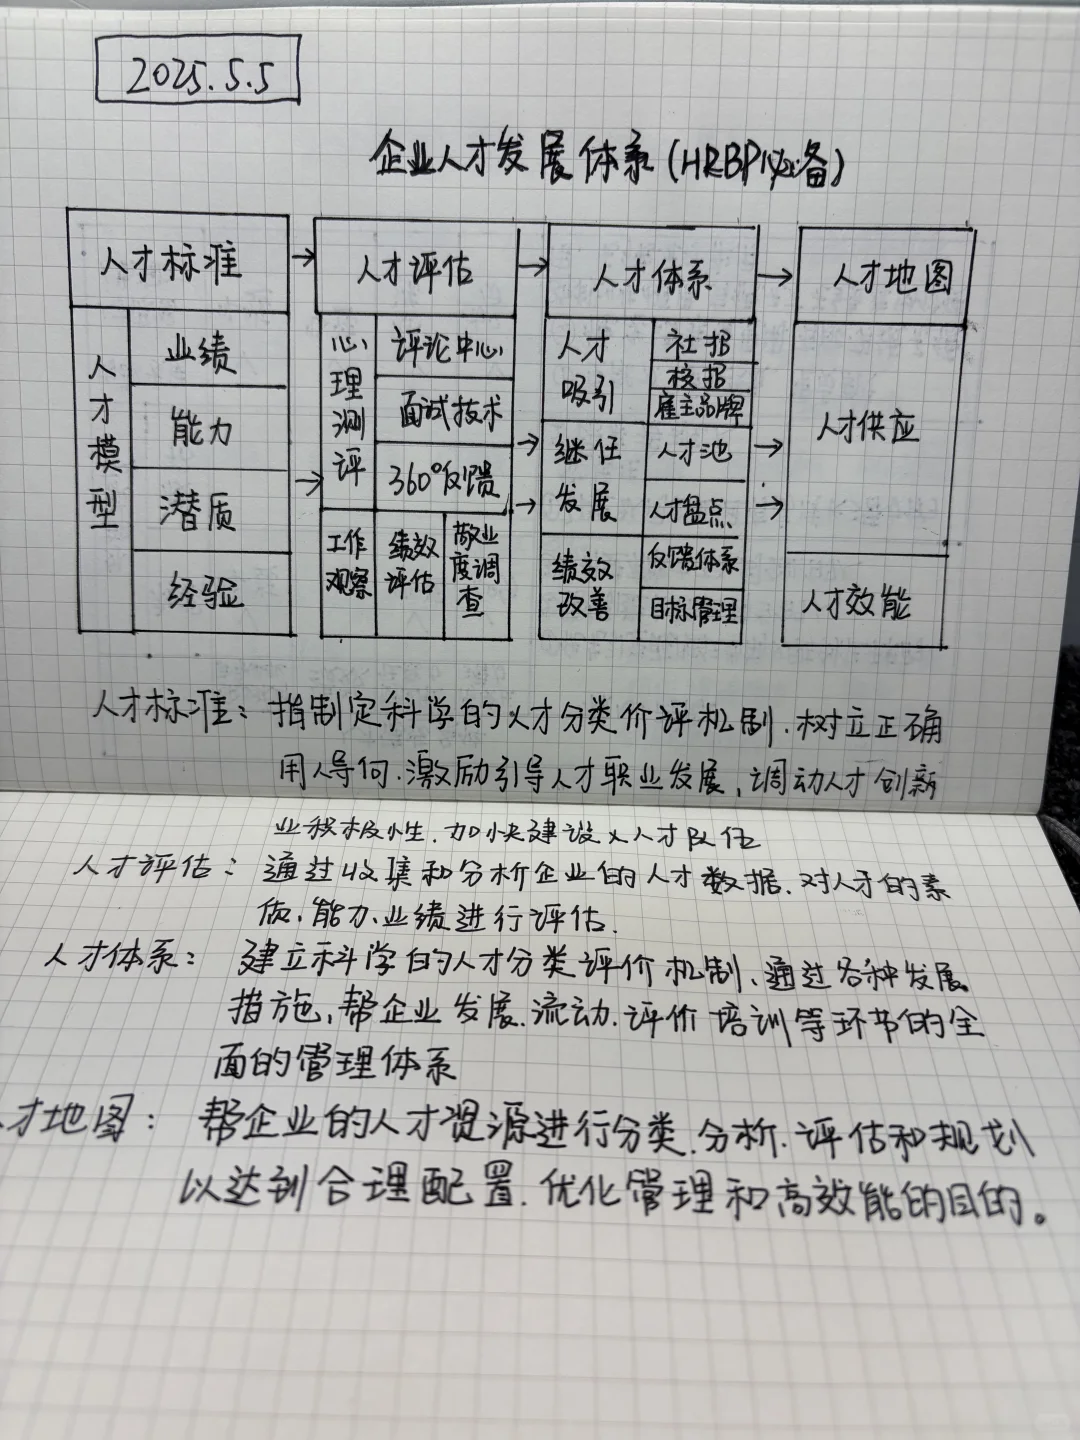 2025.5.5
企业人才发展体系(HRBP必备)
人才标准 → 人才评估 → 人才体系 → 人才地图
人才模型
业绩
能力
潜质
经验
心理测评
评论中心
面试技术
360°反馈
工作观察
绩效评估
敬业度调查
人才吸引
社招
校招
雇主品牌
继任发展
人才池
人才盘点
绩效改善
反馈体系
目标管理
人才供应
人才效能
人才标准：指制定科学的人才分类价评机制.树立正确
用人导向.激励引导人才职业发展,调动人才创新
业积极性.加快建设人才队伍
人才评估：通过收集和分析企业的人才数据.对人才的素
质、能力、业绩进行评估.
人才体系：建立科学的人才分类评价机制、通过各种发展
措施,帮企业发展.流动.评价培训等环节的全
面的管理体系
人才地图：帮企业的人才资源进行分类.分析.评估和规划
以达到合理配置.优化管理和高效能的目的。